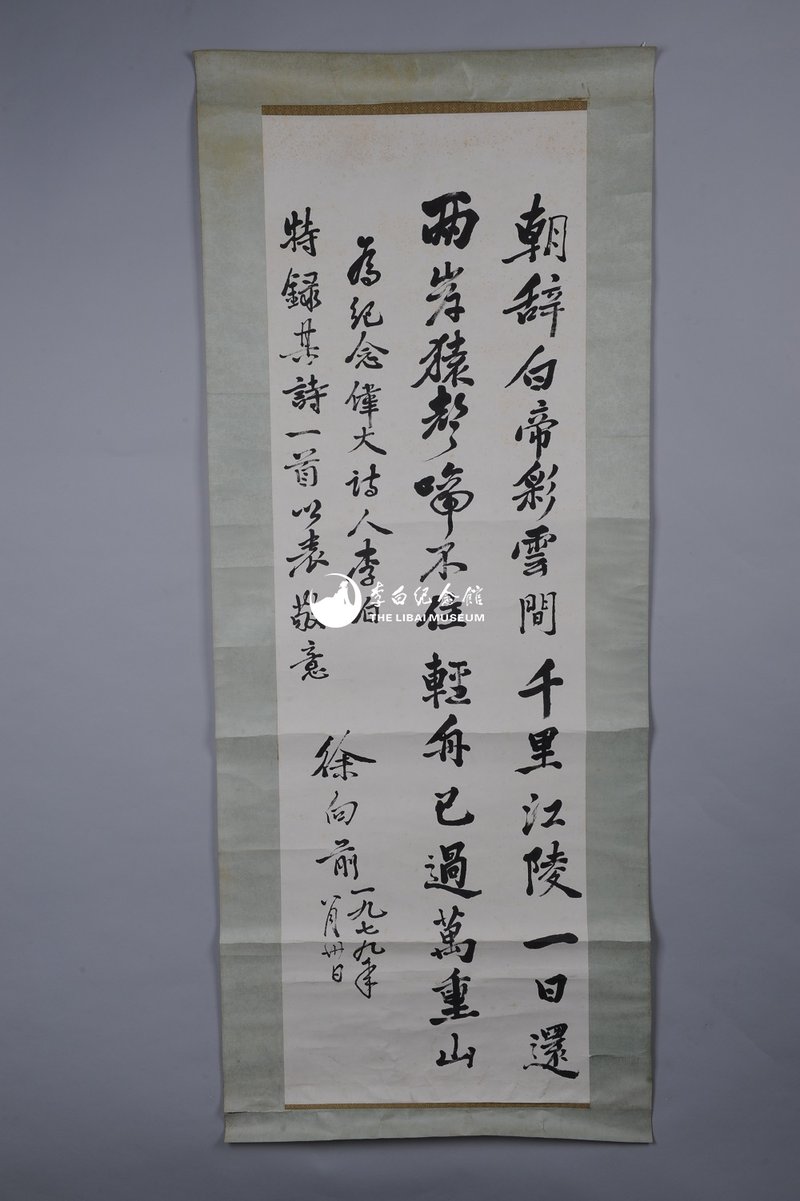 朝辞白帝彩雲間千里江陵一日還
兩岸猿聲啼不住輕舟已過萬重山
為紀念偉大詩人李白
特録其詩一首以表敬意
徐向前
一九七九年
月卅日
李白纪念館
THE LIBAI MUSEUM